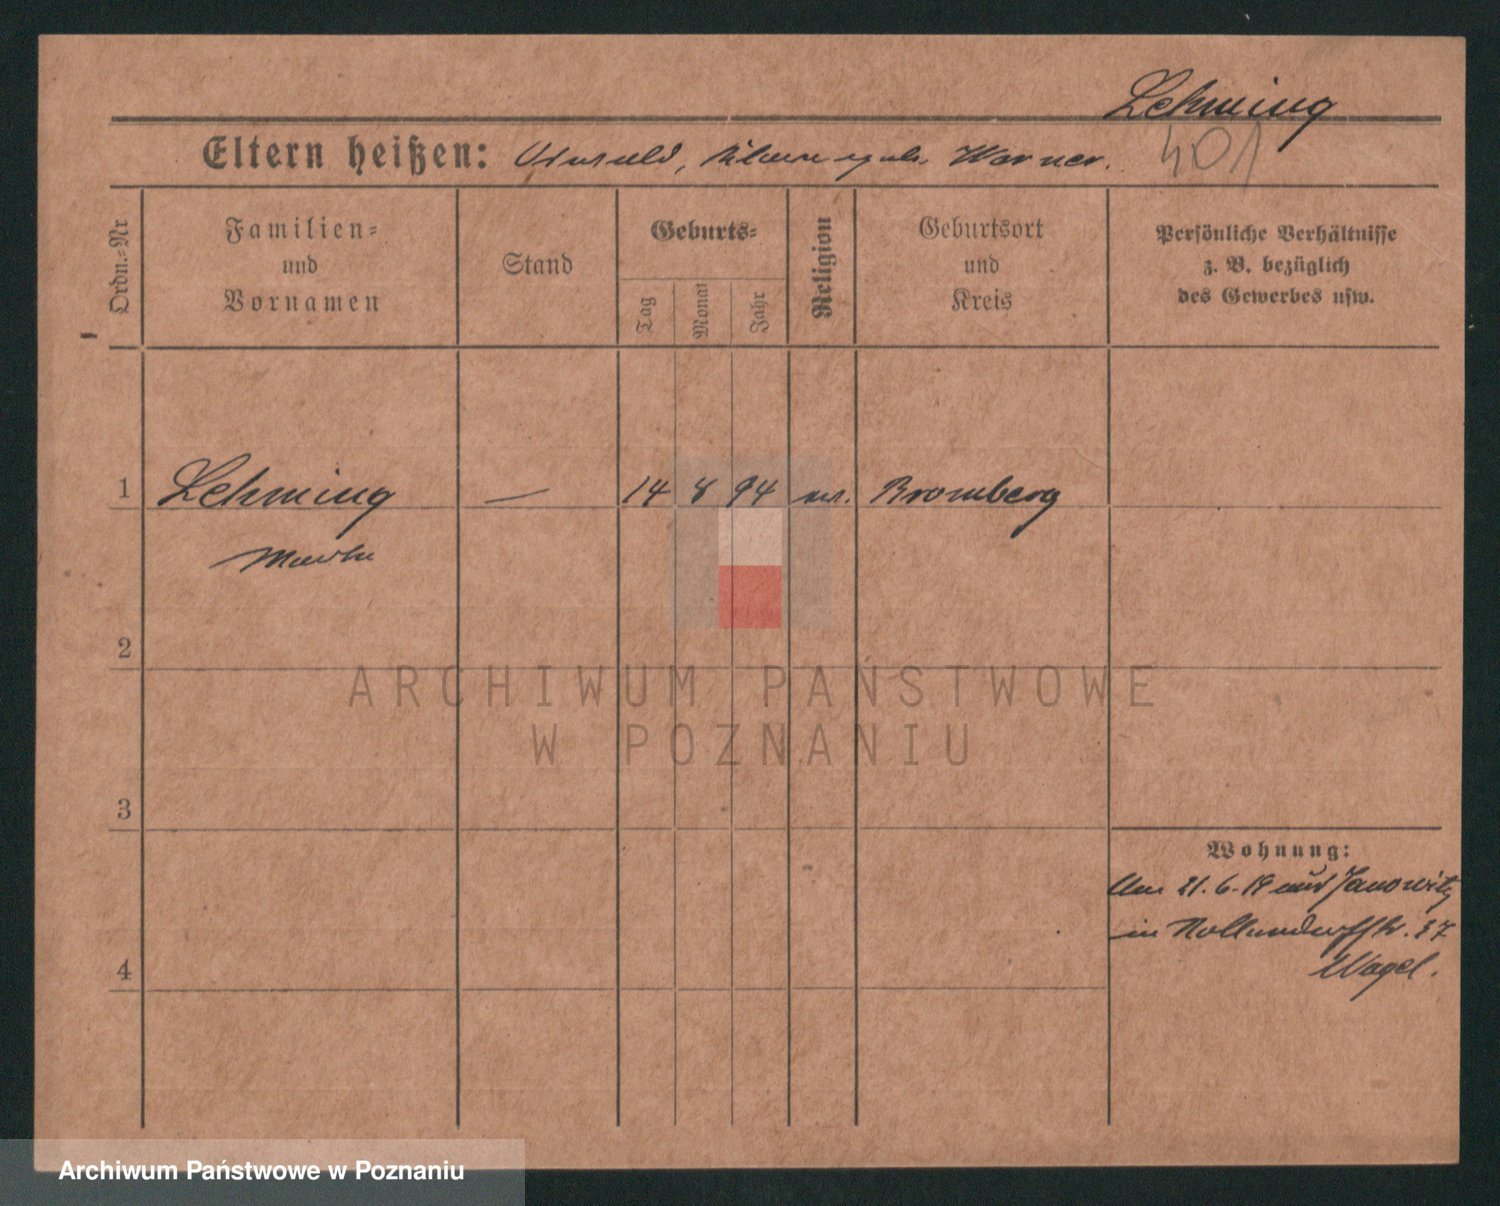 Lehming
401
Eltern heißen: geb. Warner.
Ordn.-Nr
Familien-
und
Vornamen
Stand
Geburts-
Tag
Monat
Jahr
Religion
Geburtsort
und
Kreis
Persönliche Verhältnisse
z. B. bezüglich
des Gewerbes usw.
1 Lehming — 14 8 94 ev. Bromberg
Martha
2
3
4
Wohnung:
Am 21. 6. 19 aus Janowitz
in Nollendorffstr. 37
Wagel.
ARCHIWUM PAŃSTWOWE
W POZNANIU
Archiwum Państwowe w Poznaniu